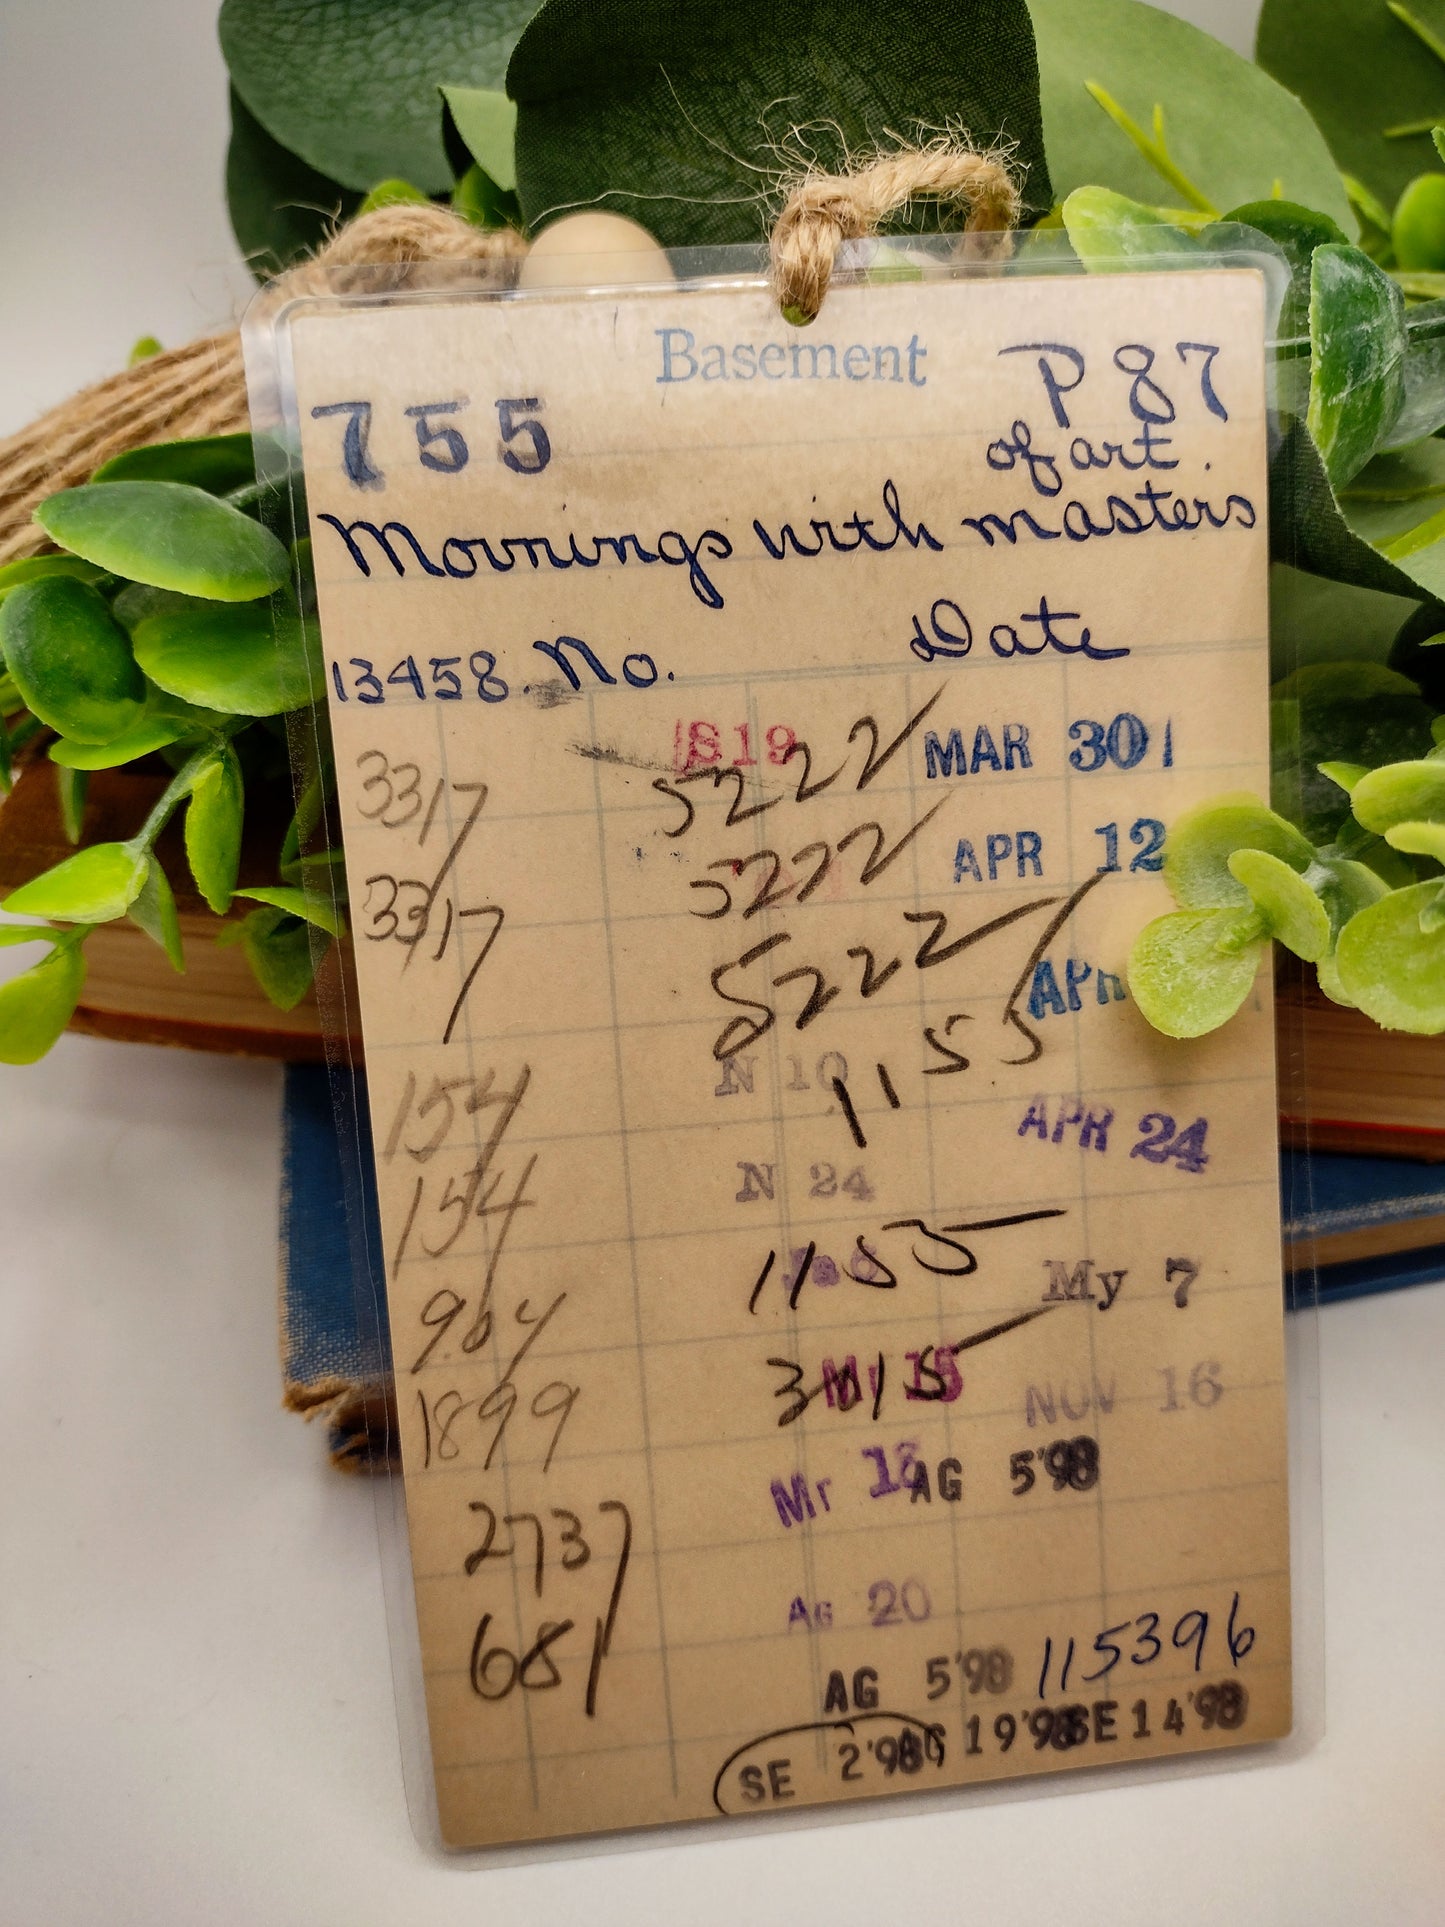 Basement
755 P87
of art.
Mornings with masters
13458. No. Date
3317 S19 5222 MAR 30
3317 5222 APR 12
5222 APR
N 10 1155
154 APR 24
154 N 24
1155 My 7
904
1899 3015 Mr 15 NOV 16
2737 Mr 18 AG 5'98
681 AG 20
AG 5'98 115396
SE 2'98 AG 19'98 SE 14'98